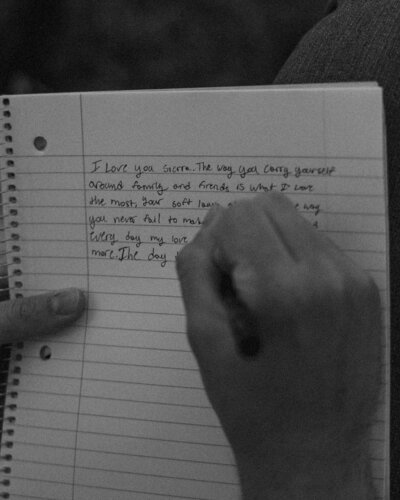 I Love you Sierra. The way you carry yourself
around family and friends is what I love
the most. Your soft laugh way
you never fail to
every day my love
more. The day